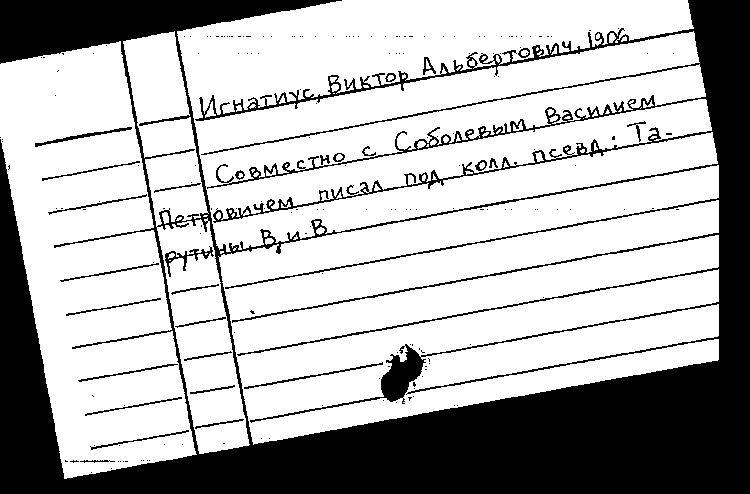 Игнатиус, Виктор Альбертович, 1906
Совместно с Соболевым, Василием
Петровичем писал под колл. псевд.: Та-
рутины, В. и В.